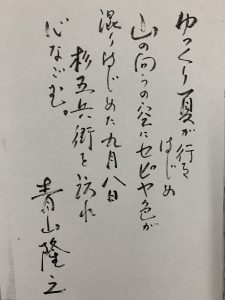 ゆっくり夏が行き
はじめ
山の向うの空にセピヤ色が
混りはじめた九月八日
杉五兵衛を訪れ
心なごむ。
青山隆之